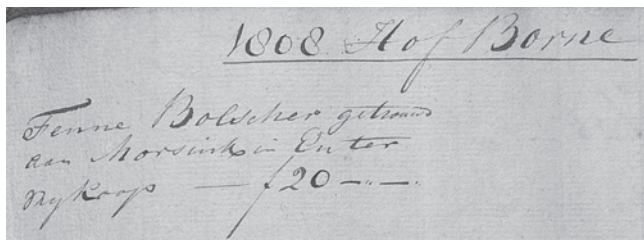 1808 Hof Borne
Fenne Bolscher getrouwd
aan Morsink in Enter
vrykoop — f 20 —„—.